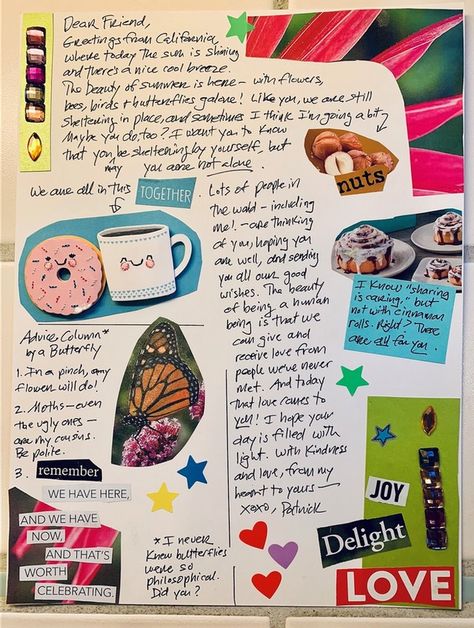 Dear Friend,
Greetings from California,
where today the sun is shining
and there's a nice cool breeze.
The beauty of summer is here - with flowers,
bees, birds + butterflies galore! Like you, we are still
sheltering in place, and sometimes I think I'm going a bit
nuts
Maybe you do too? I want you to know
that you may be sheltering by yourself, but
you are not alone.
We are all in this
TOGETHER.
Lots of people in
the world - including
me! - are thinking
of you, hoping you
are well, and sending
you all our good
wishes. The beauty
of being a human
being is that we
can give and
receive love from
people we've never
met. And today
that love comes to
you! I hope your
day is filled with
light. With kindness
and love, from my
heart to yours -
xoxo, Patrick
I know "sharing
is caring," but
not with cinnamon
rolls. Right? These
are all for you.
Advice Column*
by a Butterfly
1. In a pinch, any
flower will do!
2. Moths - even
the ugly ones -
are my cousins.
Be polite.
3. remember
WE HAVE HERE,
AND WE HAVE
NOW,
AND THAT'S
WORTH
CELEBRATING.
* I never
knew butterflies
were so
philosophical.
Did you?
JOY
Delight
LOVE